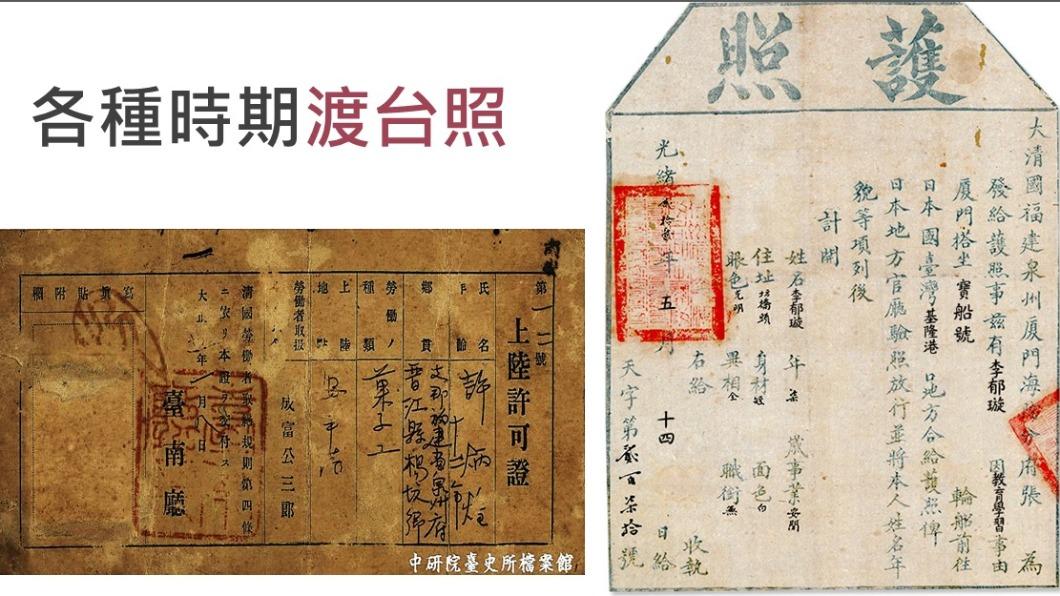 各種時期渡台照
護照
大清國福建泉州厦門海防分府張 為
發給護照事茲有李郁璇 因教育學習事由
厦門搭坐 寶船號 輪船前往
日本國臺灣基隆港 口地方合給護照俾
日本地方官廳驗照放行並將本人姓名年
貌等項列後
計開
姓名李郁璇 年 柒 歲事業
住址 身材 面色白
眼色 異相全 職銜無
右給 收執
光緒 年五月十四日給
天字第 百柒拾號
第一二號
上陸許可證
氏名 許炳
年齡 十二
鄉貫 支那福建省泉州府晋江縣
勞働ノ種類 菓子工
上陸地 安平港
勞働者取扱 成富公三郎
清國勞働者取扱規則第四條
ニ依リ本證ヲ交付ス
大正 年 月 日
臺南廳
寫真貼附欄
中研院臺史所檔案館